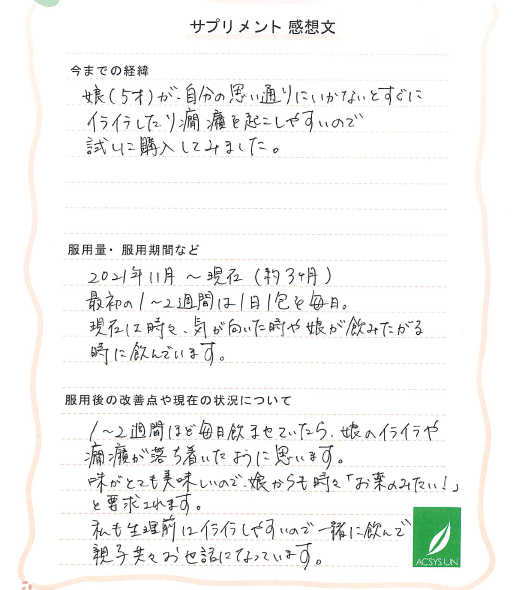 サプリメント 感想文
今までの経緯
娘(5才)が、自分の思い通りにいかないとすぐに
イライラしたり癇癪を起こしやすいので
試しに購入してみました。
服用量・服用期間など
2021年11月 ～ 現在 (約3ヶ月)
最初の1～2週間は1日1包を毎日。
現在は時々、気が向いた時や娘が飲みたがる
時に飲んでいます。
服用後の改善点や現在の状況について
1～2週間ほど毎日飲ませていたら、娘のイライラや
癇癪が落ち着いたように思います。
味がとても美味しいので、娘からも時々「お薬のみたい!」
と要求されます。
私も生理前はイライラしやすいので一緒に飲んで
親子共々お世話になっています。
ACSYS UN